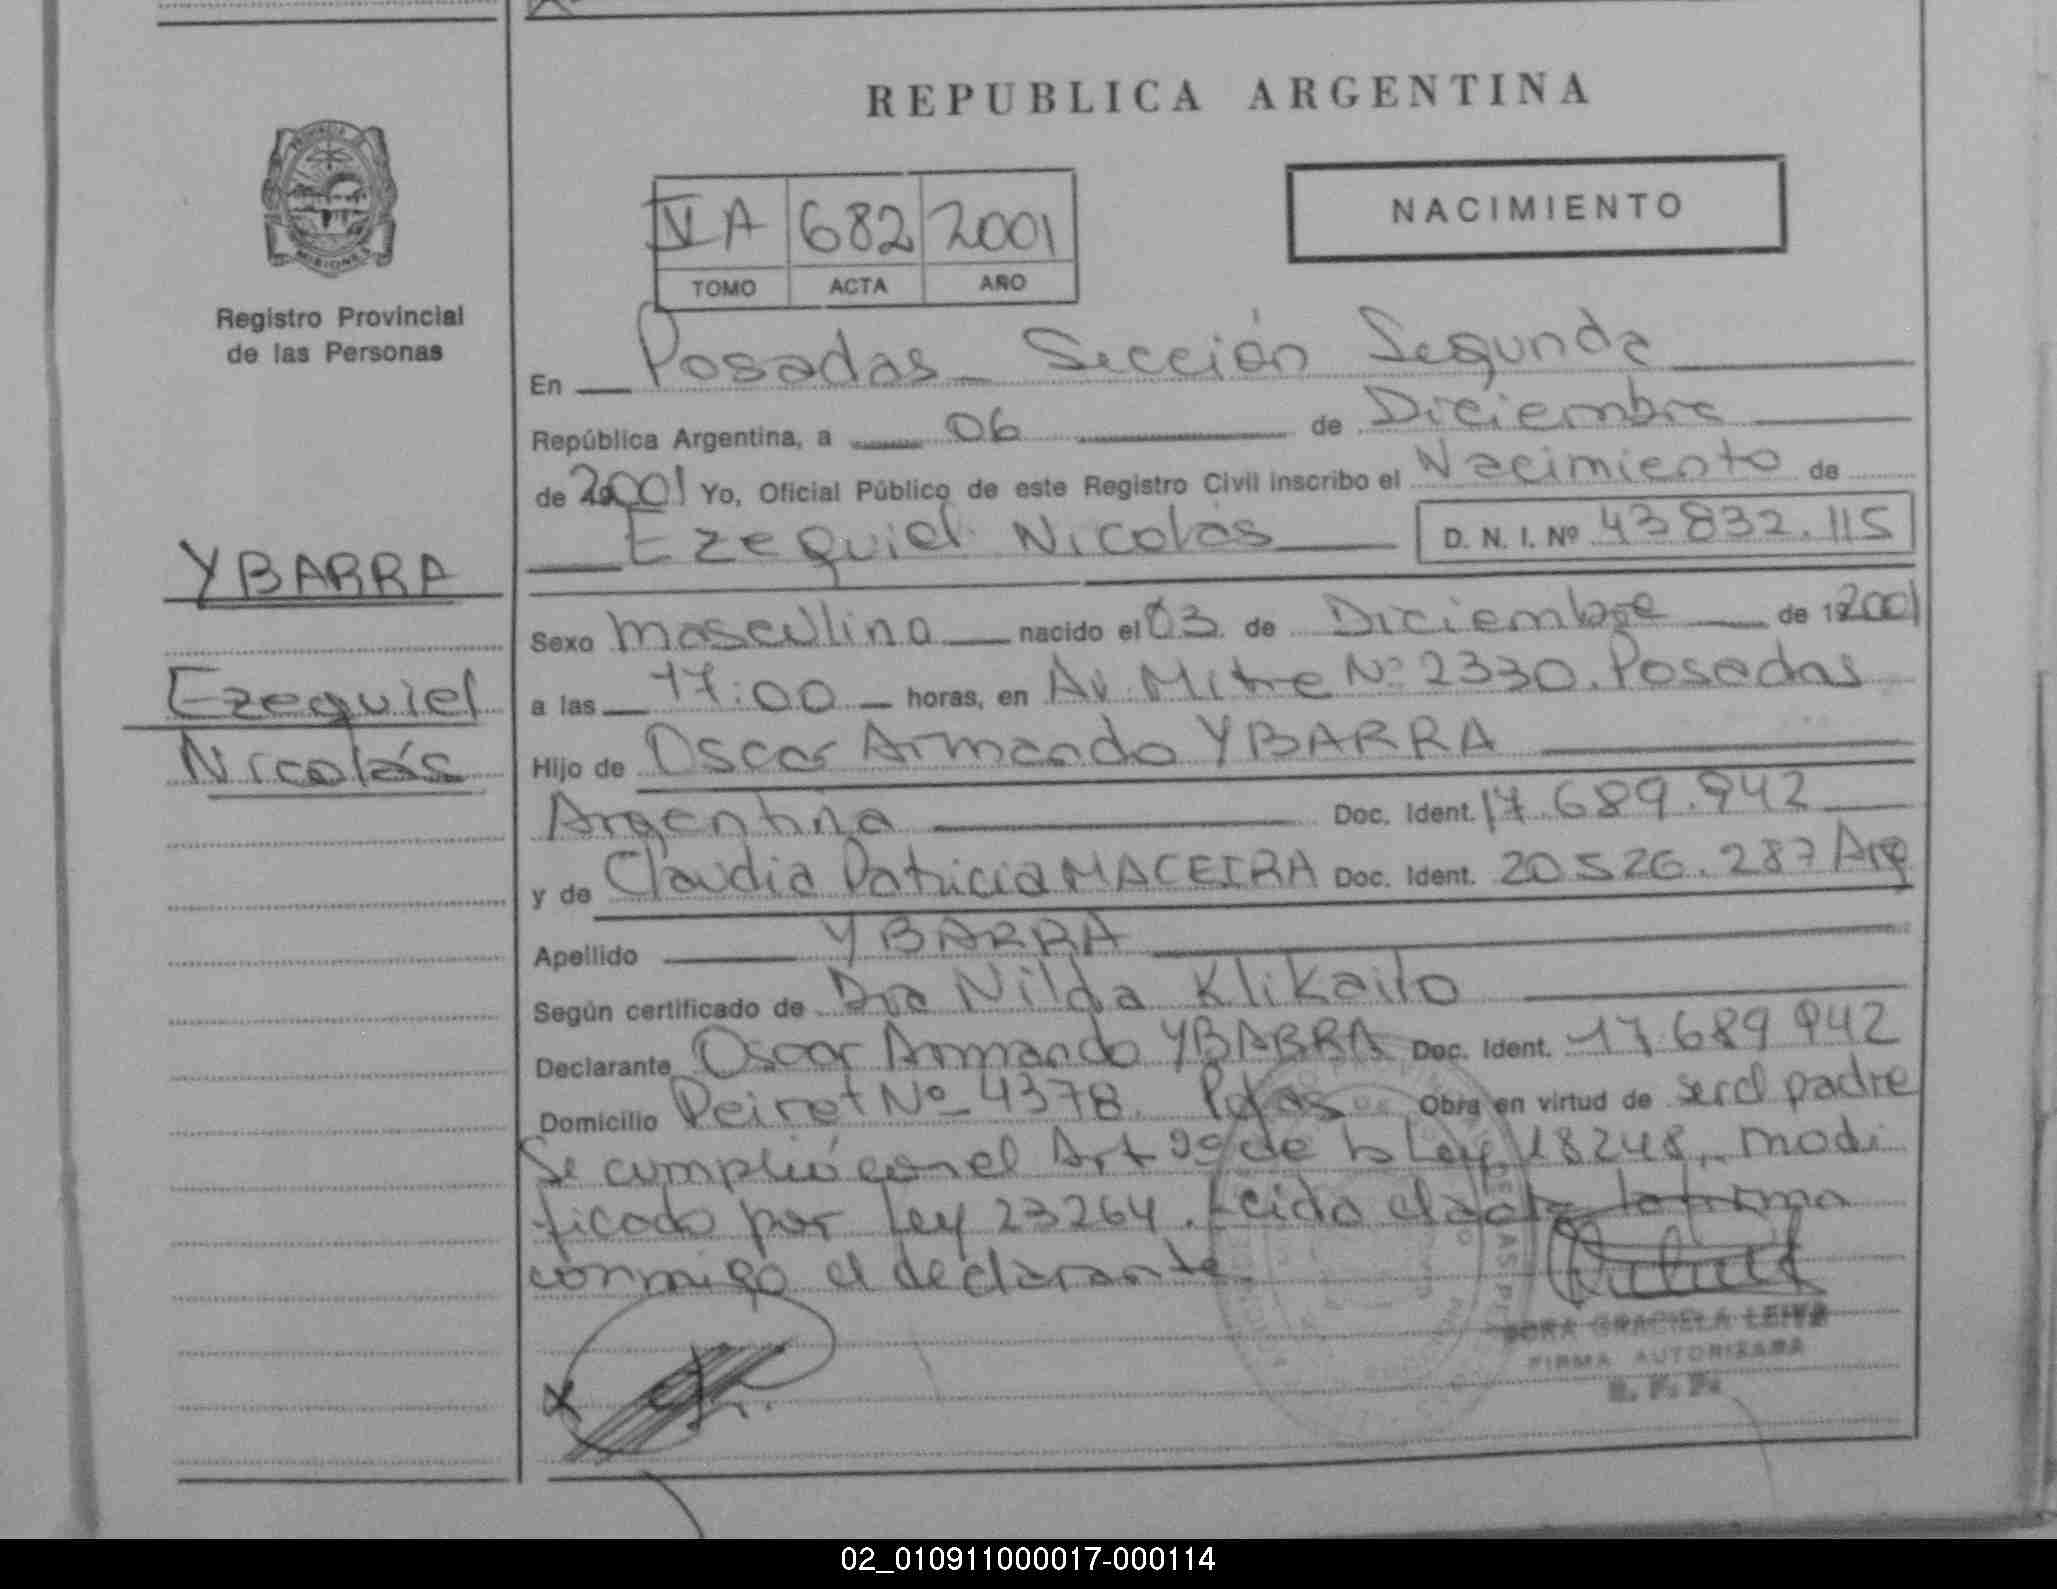 REPUBLICA ARGENTINA
PROVINCIA
MISIONES
Registro Provincial
de las Personas
VA 682 2001
TOMO ACTA AÑO
NACIMIENTO
En Posadas - Sección Segunda
República Argentina, a 06 de Diciembre
de 2001 Yo, Oficial Público de este Registro Civil inscribo el Nacimiento de
Ezequiel Nicolás D. N. I. Nº 43832.115
YBARRA
Ezequiel
Nicolás
Sexo masculino nacido el 03 de Diciembre de 192001
a las 17:00 horas, en Av. Mitre Nº 2330. Posadas
Hijo de Oscar Armando YBARRA
Argentina Doc. Ident. 17.689.942
y de Claudia Patricia MACEIRA Doc. Ident. 20526.287 Arg
Apellido YBARRA
Según certificado de Dra Nilda Klikailo
Declarante Oscar Armando YBARRA Doc. Ident. 17.689 942
Domicilio Peiret Nº 4378. Pdas Obra en virtud de ser el padre
Se cumplió con el Art de la Ley 18248, modi
ficado por Ley 23264. Leida el acta la firma
conmigo el declarante.
DORA GRACIELA LEIVA
FIRMA AUTORIZADA
R. P. P.
02_010911000017-000114